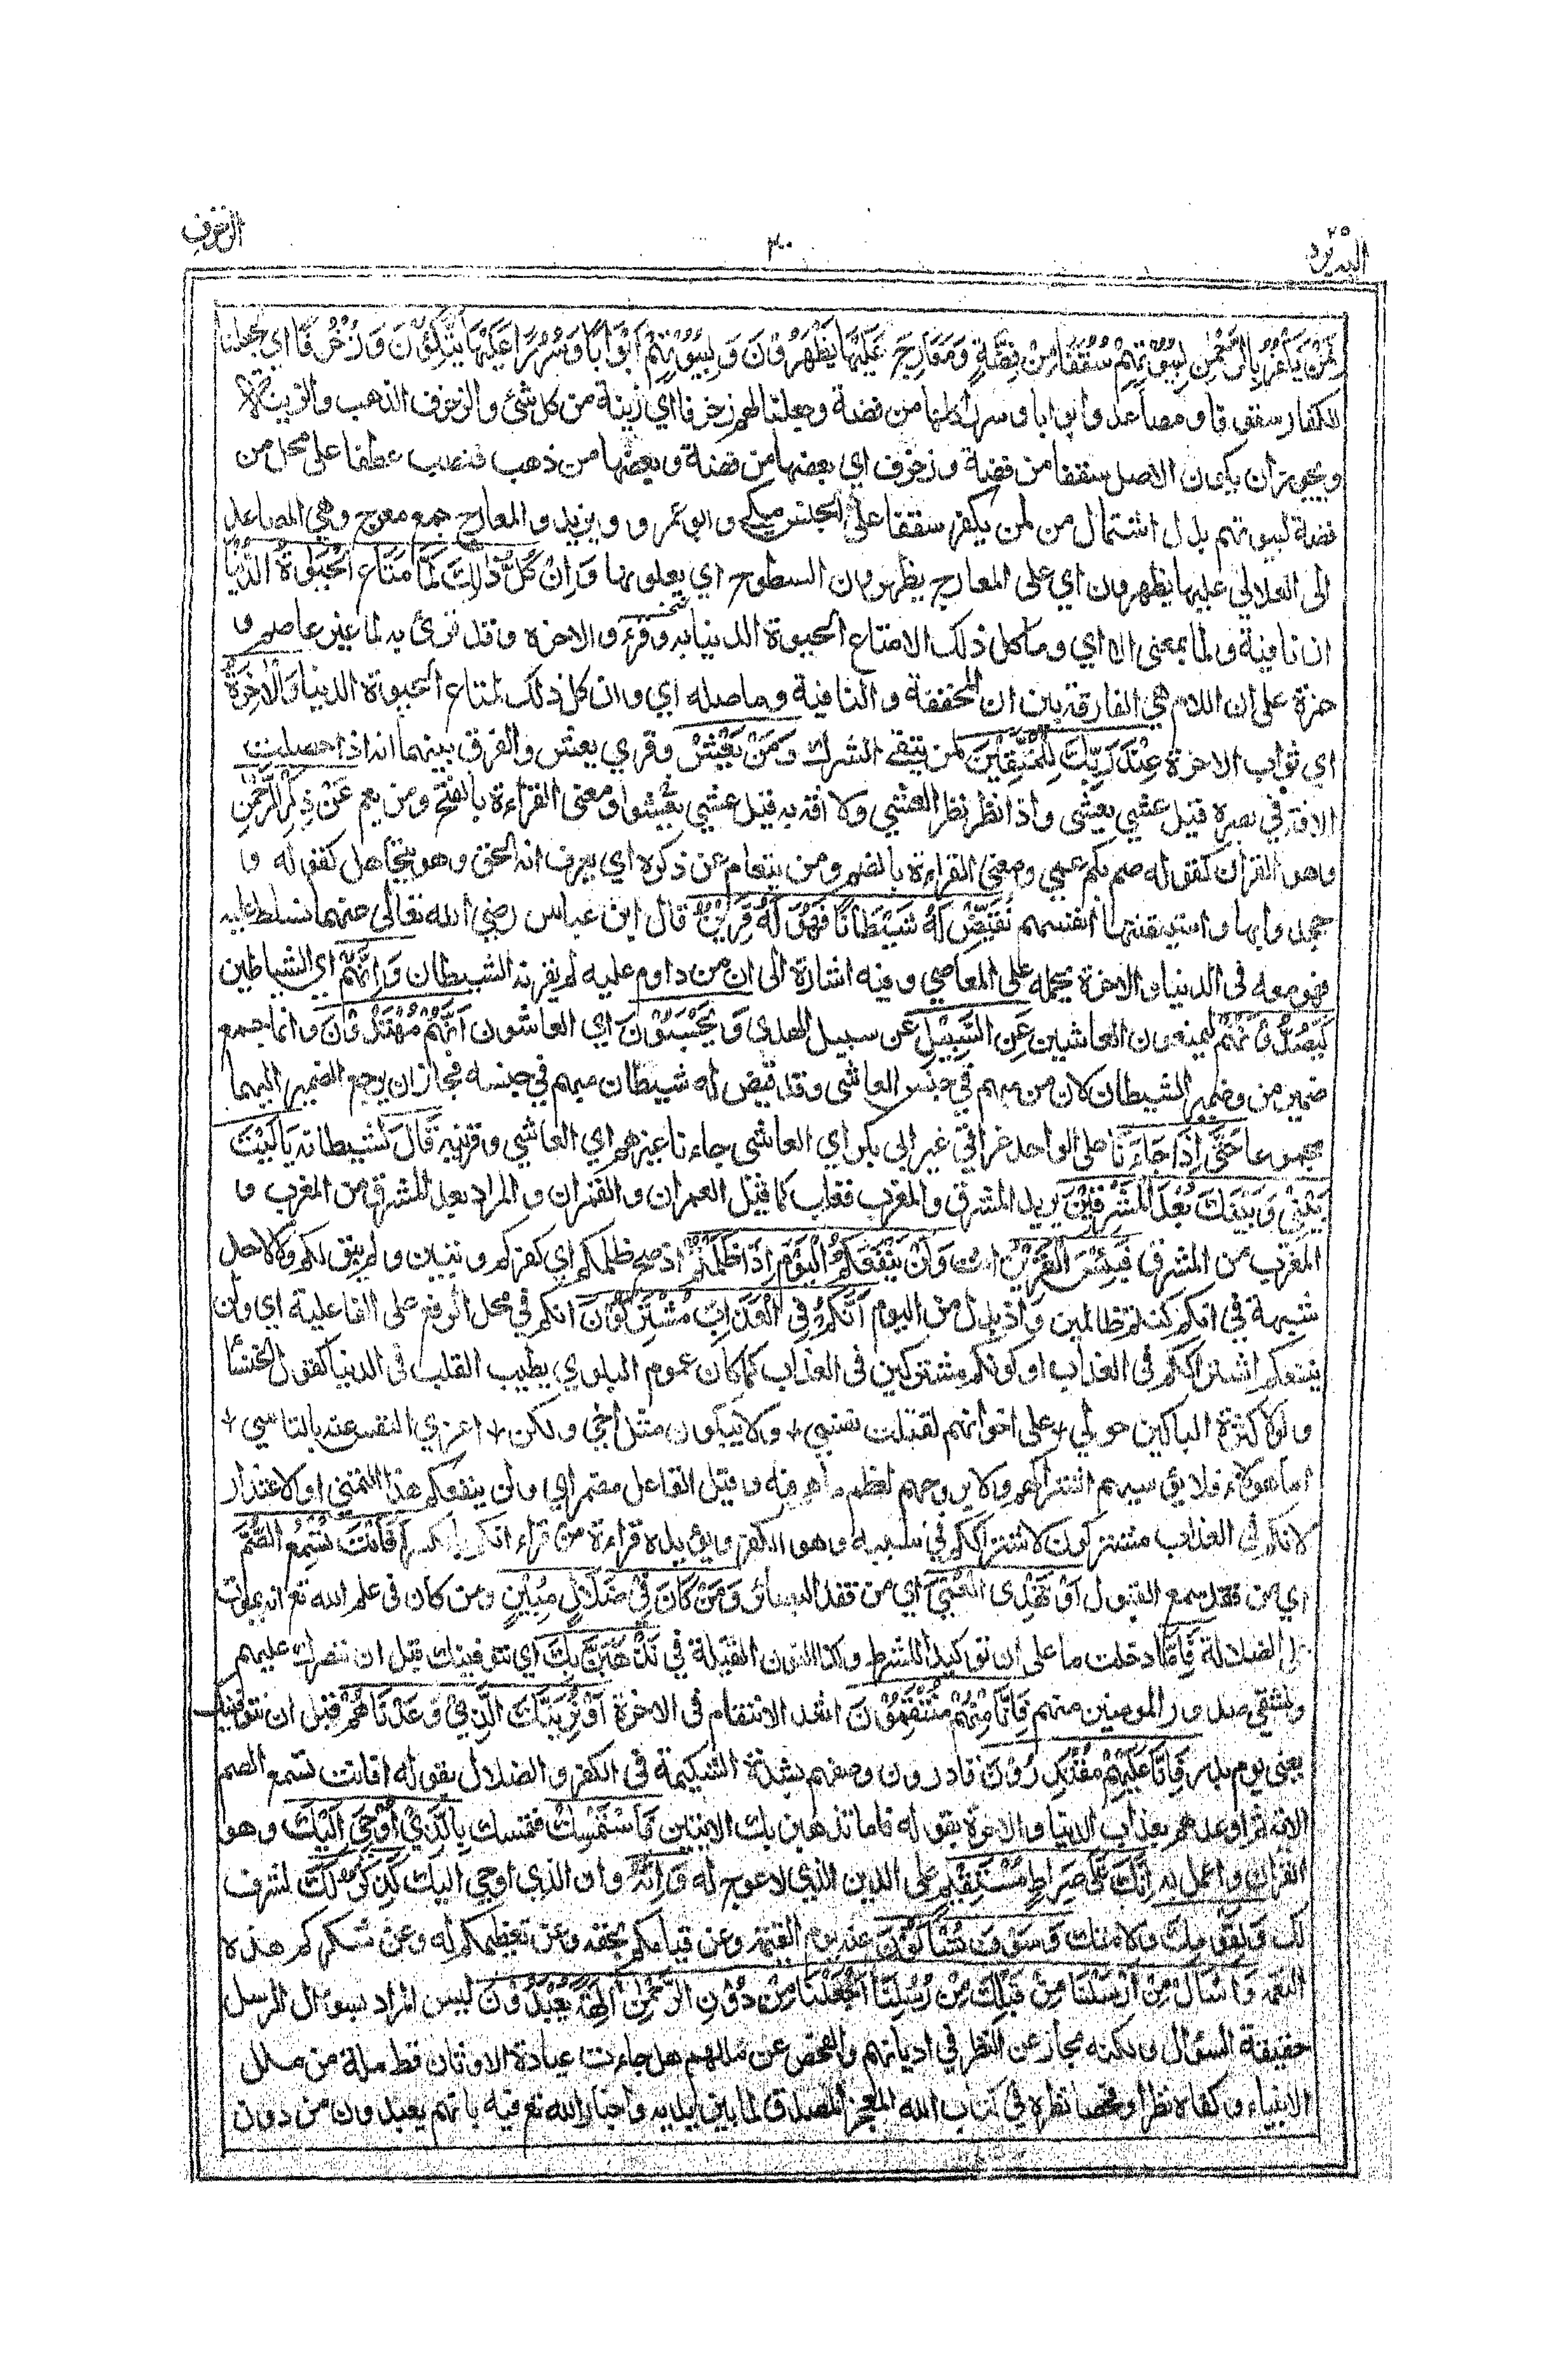 اليه يرد
٣٠٠
الزخرف
لِمَنْ يَكْفُرُ بِالرَّحْمٰنِ لِبُيُوْتِهِمْ سُقُفًا مِنْ فِضَّةٍ وَمَعَارِجَ عَلَيْهَا يَظْهَرُوْنَ وَلِبُيُوْتِهِمْ اَبْوَابًا وَسُرُرًا عَلَيْهَا يَتَّكِؤُنَ وَزُخْرُفًا اي لجعلنا
للكفار سقوفا ومصاعد وابوابا وسررا كلها من فضة وجعلنا لهم زخرفا اي زينة من كل شئ والزخرف الذهب والزينة
ويجوز ان يكون الاصل سقفا من فضة وزخرف اي بعضها من فضة وبعضها من ذهب فنصب عطفا على محل من
فضة لبيوتهم بدل اشتمال من لمن يكفر سقفا على الجنس مكي وابو عمرو ويزيد والمعارج جمع معرج وهي المصاعد
الى العلالي عليها يظهرون اي على المعارج يظهرون السطوح اي يعلونها وَاِنْ كُلُّ ذٰلِكَ لَمَّا مَتَاعُ الْحَيٰوةِ الدُّنْيَا
ان نافية ولما بمعنى الا اي وما كل ذلك الا متاع الحيوة الدنيا وبه قرئ والاخرة وقد قرئ به لما غير عاصم و
حمزة على ان اللام هي الفارقة بين ان المخففة والنافية وما صلة اي وان كل ذلك لمتاع الحيوة الدنيا وَالْاٰخِرَةُ
اي ثواب الاخرة عِنْدَ رَبِّكَ لِلْمُتَّقِيْنَ لمن يتقي الشرك وَمَنْ يَّعْشُ وقري يعش والفرق بينهما انه اذا حصلت
الافة في بصره قيل عشي يعشى واذا نظر نظر العشي ولا افة به قيل عشي يعشوا ومعنى القراءة بالفتح ومن يعم عَنْ ذِكْرِ الرَّحْمٰنِ
وهو القرآن كقوله صم بكم عمي ومعنى القراءة بالضم ومن يتعام عن ذكره اي يعرف انه الحق وهو يتجاهل كقوله و
جحدوا بها واستيقنتها انفسهم نُقَيِّضْ لَهٗ شَيْطَانًا فَهُوَ لَهٗ قَرِيْنٌ قال ابن عباس رضي الله تعالى عنهما نسلط عليه
فهو معه فى الدنيا والاخرة يحمله على المعاصي وفيه اشارة الى ان من داوم عليه لم يقرنه الشيطان وَاِنَّهُمْ اي الشياطين
لَيَصُدُّوْنَهُمْ ليمنعون العاشين عَنِ السَّبِيْلِ عن سبيل الهدى وَيَحْسَبُوْنَ اي العاشون اَنَّهُمْ مُهْتَدُوْنَ وانما جمع
ضمير من وضمير الشيطان لان من مبهم في جنس العاشى وقد قيض له شيطان مبهم في جنسه فجاز ان يرجع الضمير اليهما
مجموعا حَتّٰى اِذَا جَاءَنَا على الواحد عراقي غير ابى بكر اي العاشى جاءنا غيرهم اي العاشي وقرينه قَالَ لشيطانه يَا لَيْتَ
بَيْنِيْ وَبَيْنَكَ بُعْدَ الْمَشْرِقَيْنِ يريد المشرق والمغرب فغلب كما قيل العمران والقمران والمراد بعد المشرق من المغرب و
المغرب من المشرق فَبِئْسَ الْقَرِيْنُ انت وَلَنْ يَنْفَعَكُمُ الْيَوْمَ اِذْ ظَلَمْتُمْ اذ صح ظلمكم اي كفركم وتبين ولم يبق لكم ولا لاحد
شبهة في انكم كنتم ظالمين واذ بدل من اليوم اَنَّكُمْ فِى الْعَذَابِ مُشْتَرِكُوْنَ انكم في محل الرفع على الفاعلية اي ولن
ينفعكم اشتراككم فى العذاب او كونكم مشتركين فى العذاب كما كان عموم البلوي يطيب القلب فى الدنيا كقول الخنساء
ولولا كثرة الباكين حولي + على اخوانهم لقتلت نفسي + ولا يبكون مثل اخي ولكن + اعزي النفس عنه بالتاسي +
اما هولاء فلا يؤسيهم اشتراكهم ولا يروحهم لعظم ما هم فيه وقيل الفاعل مضمر اي ولن ينفعكم هذا التمني او الاعتذار
لانكم فى العذاب مشتركون لاشتراككم في سببه وهو الكفر ويؤيده قراءة من قراء انكم بالكسر اَفَاَنْتَ تُسْمِعُ الصُّمَّ
اي من فقد سمع القبول اَوْ تَهْدِى الْعُمْيَ اي من فقد البصائر وَمَنْ كَانَ فِيْ ضَلَالٍ مُبِيْنٍ ومن كان فى علم الله تع انه يموت
على الضلالة فَاِمَّا دخلت ما على ان توكيدا للشرط وكذا النون الثقيلة في نَذْهَبَنَّ بِكَ اي نتوفينك قبل ان ننصرك عليهم
ونشفي صدور المومنين منهم فَاِنَّا مِنْهُمْ مُنْتَقِمُوْنَ اشد الانتقام فى الاخرة اَوْ نُرِيَنَّكَ الَّذِيْ وَعَدْنَاهُمْ قبل ان نتوفينك
يعنى يوم بدر فَاِنَّا عَلَيْهِمْ مُقْتَدِرُوْنَ قادرون وصفهم بشدة الشكيمة فى الكفر والضلال بقوله افانت تسمع الصم
الاية ثم اوعدهم بعذاب الدنيا والاخرة بقوله فاما نذهبن بك الايتين فَاسْتَمْسِكْ فتمسك بِالَّذِيْ اُوْحِيَ اِلَيْكَ وهو
القرآن واعمل به اِنَّكَ عَلٰى صِرَاطٍ مُسْتَقِيْمٍ على الدين الذي لا عوج له وَاِنَّهٗ وان الذي اوحي اليك لَذِكْرٌ لَكَ لشرف
لك وَلِقَوْمِكَ ولامتك وَسَوْفَ تُسْأَلُوْنَ عنه يوم القيمة وعن قيامكم بحقه وعن تعظيمكم له وعن شكركم هذه
النعمة وَاسْأَلْ مَنْ اَرْسَلْنَا مِنْ قَبْلِكَ مِنْ رُسُلِنَا اَجَعَلْنَا مِنْ دُوْنِ الرَّحْمٰنِ اٰلِهَةً يُعْبَدُوْنَ ليس المراد بسوال الرسل
حقيقة السؤال ولكنه مجاز عن النظر في اديانهم والفحص عن مللهم هل جاءت عبادة الاوثان قط ملة من ملل
الانبياء وكفاه نظرا وفحصا نظره في كتاب الله المعجز المصدق لما بين يديه واخبار الله تع فيه بانهم يعبدون من دون